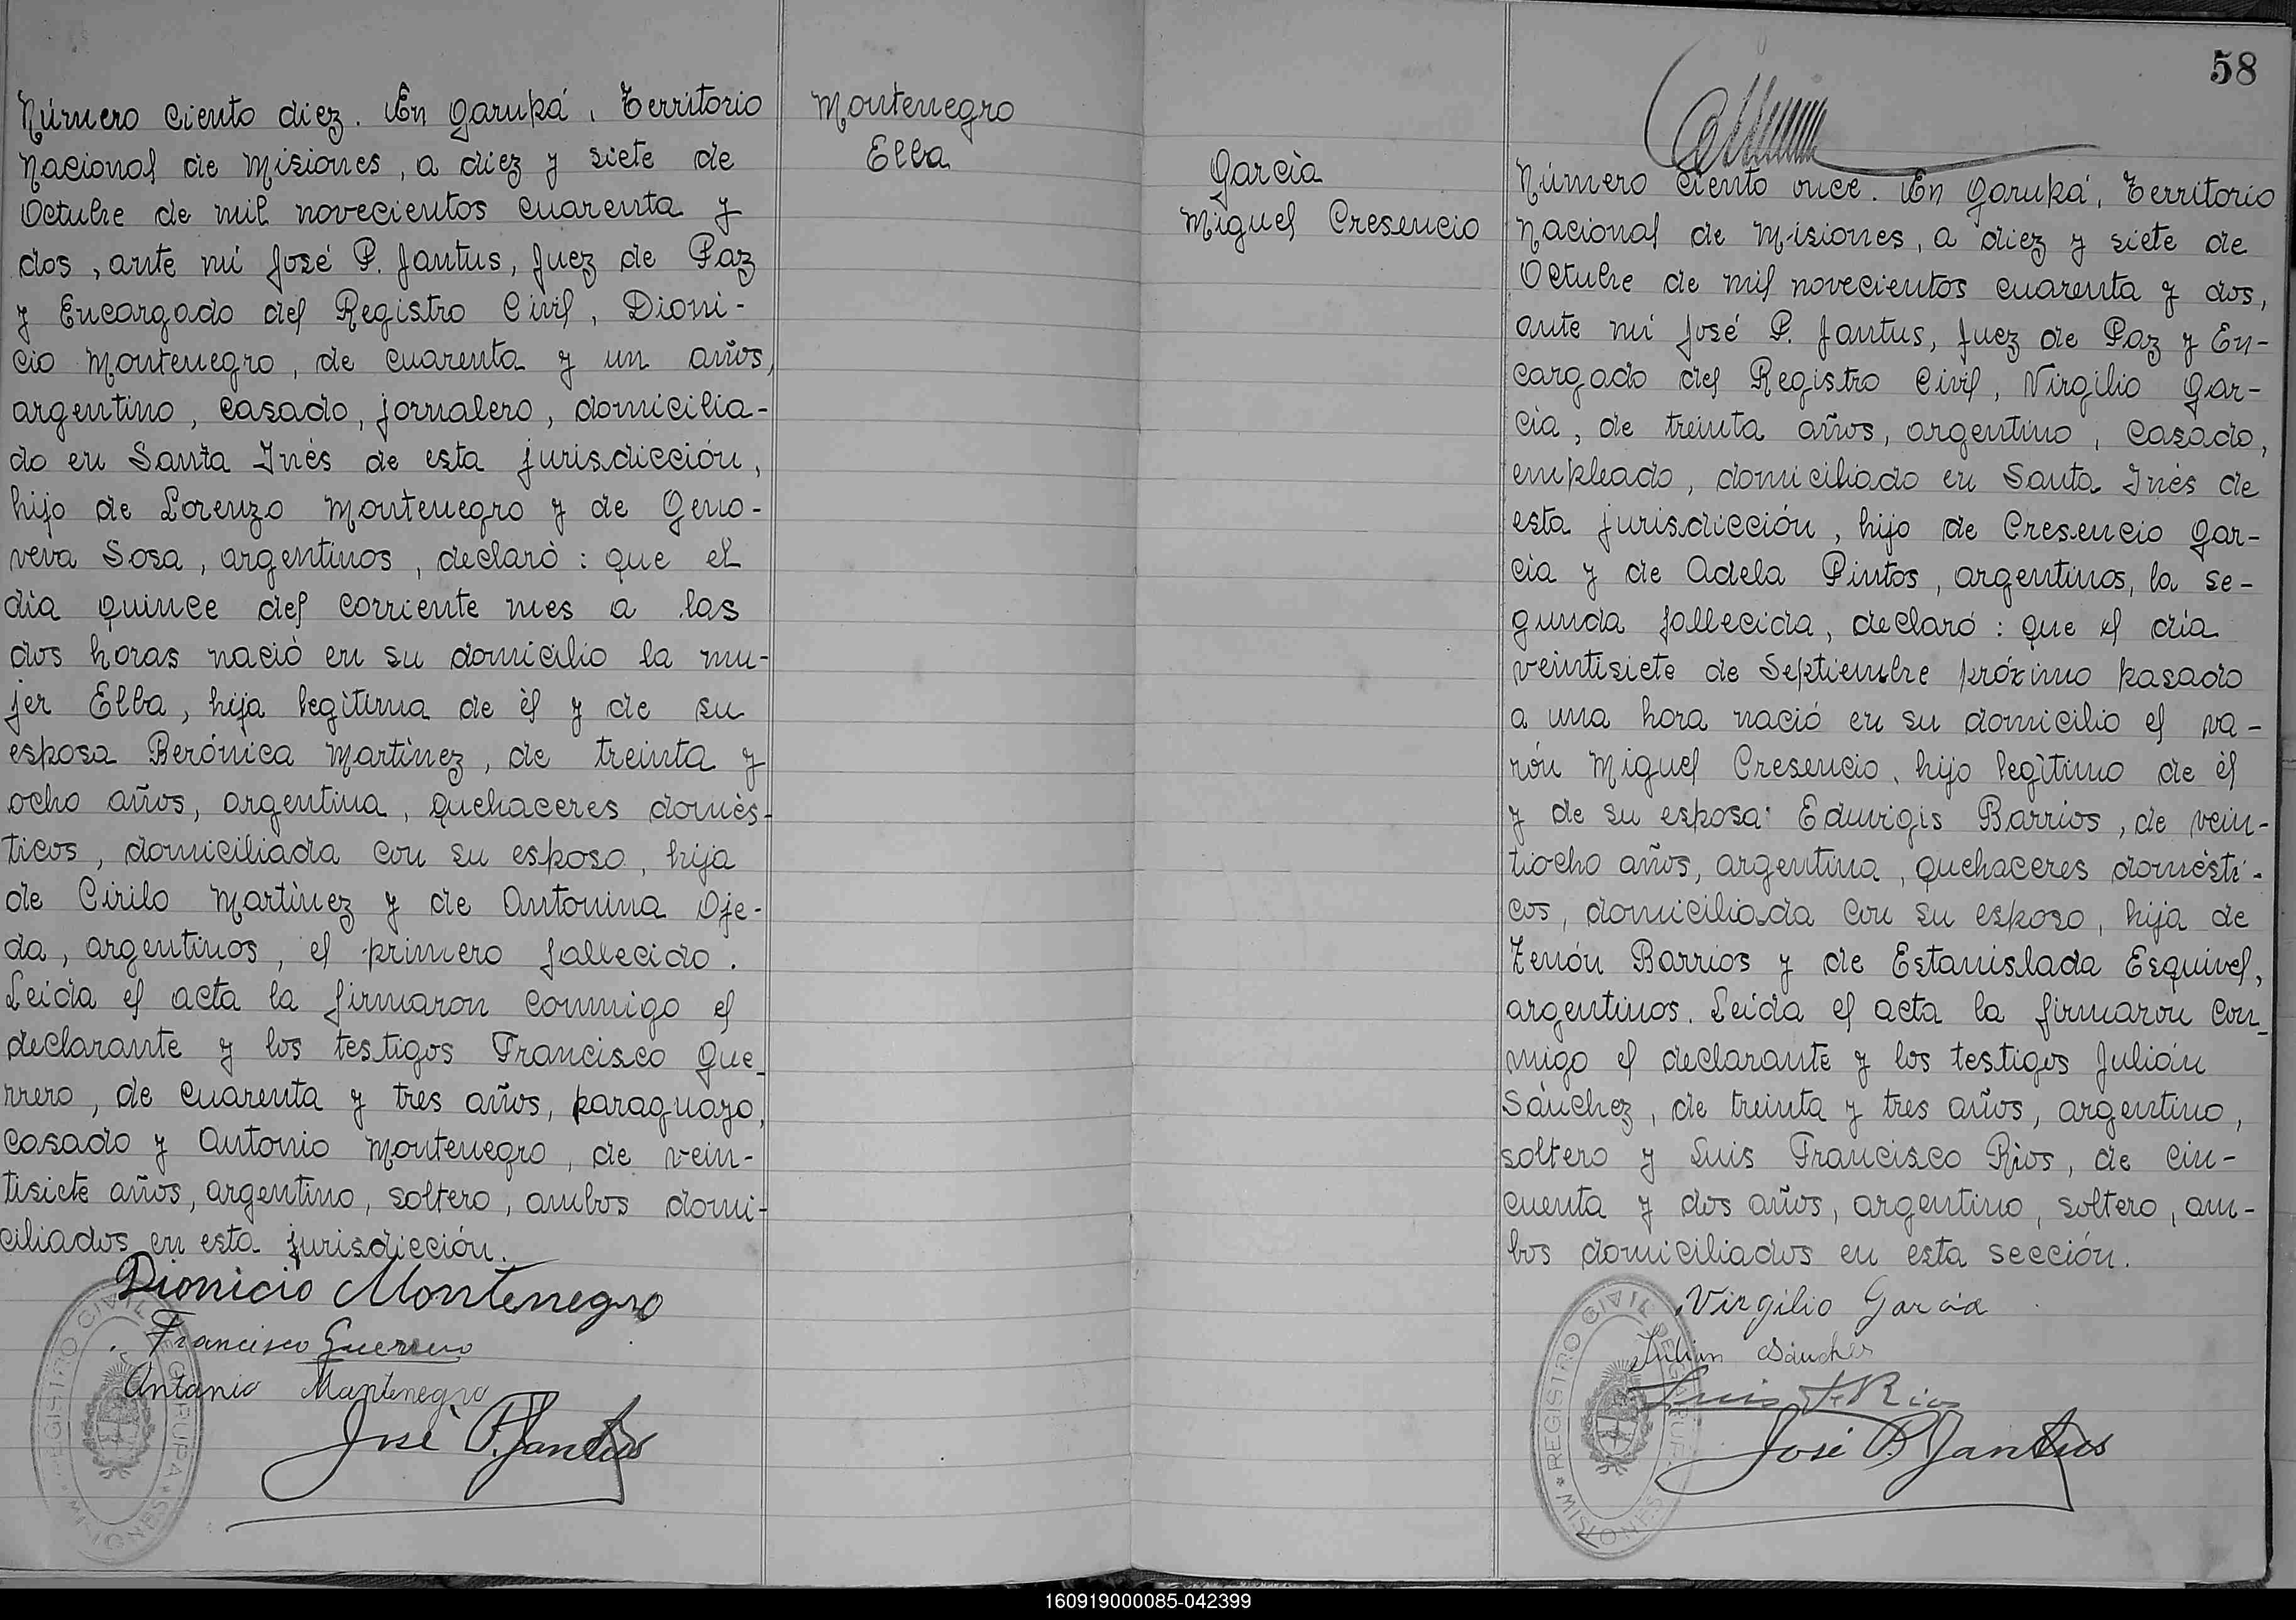 Número ciento diez. En Garupá, Territorio
Nacional de Misiones, a diez y siete de
Octubre de mil novecientos cuarenta y
dos, ante mí José P. Jantus, Juez de Paz
y Encargado del Registro Civil, Dioni-
cio Montenegro, de cuarenta y un años,
argentino, casado, jornalero, domicilia-
do en Santa Inés de esta jurisdicción,
hijo de Lorenzo Montenegro y de Geno-
veva Sosa, argentinos, declaró: que el
día quince del corriente mes a las
dos horas nació en su domicilio la mu-
jer Elba, hija legìtima de èl y de su
esposa Berónica Martìnez, de treinta y
ocho años, argentina, quehaceres domès-
ticos, domiciliada con su esposo, hija
de Cirilo Martìnez y de Antonina Oje-
da, argentinos, el primero fallecido.
Leída el acta la firmaron conmigo el
declarante y los testigos Francisco Gue-
rrero, de cuarenta y tres años, paraguayo,
casado y Antonio Montenegro, de vein-
tisiete años, argentino, soltero, ambos domi-
ciliados en esta jurisdicción.
Dionicio Montenegro
Francisco Guerrero
Antonio Montenegro
José P. Jantus
REGISTRO CIVIL GARUPA
MISIONES
Montenegro
Elba
García
Miguel Cresencio
58
Número ciento once. En Garupá, Territorio
Nacional de Misiones, a diez y siete de
Octubre de mil novecientos cuarenta y dos,
ante mí José P. Jantus, Juez de Paz y En-
cargado del Registro Civil, Virgilio Gar-
cía, de treinta años, argentino, casado,
empleado, domiciliado en Santa Inés de
esta jurisdicción, hijo de Cresencio Gar-
cía y de Adela Pintos, argentinos, la se-
gunda fallecida, declaró: que el día
veintisiete de Septiembre próximo pasado
a una hora nació en su domicilio el va-
rón Miguel Cresencio, hijo legìtimo de èl
y de su esposa Eduvigis Barrios, de vein-
tiocho años, argentina, quehaceres domésti-
cos, domiciliada con su esposo, hija de
Zenón Barrios y de Estanislada Esquivel,
argentinos. Leída el acta la firmaron con-
migo el declarante y los testigos Julián
Sánchez, de treinta y tres años, argentino,
soltero y Luis Francisco Ríos, de cin-
cuenta y dos años, argentino, soltero, am-
bos domiciliados en esta sección.
Virgilio García
Julian Sánchez
Luis F. Rios
José P. Jantus
REGISTRO CIVIL GARUPA
MISIONES
160919000085-042399